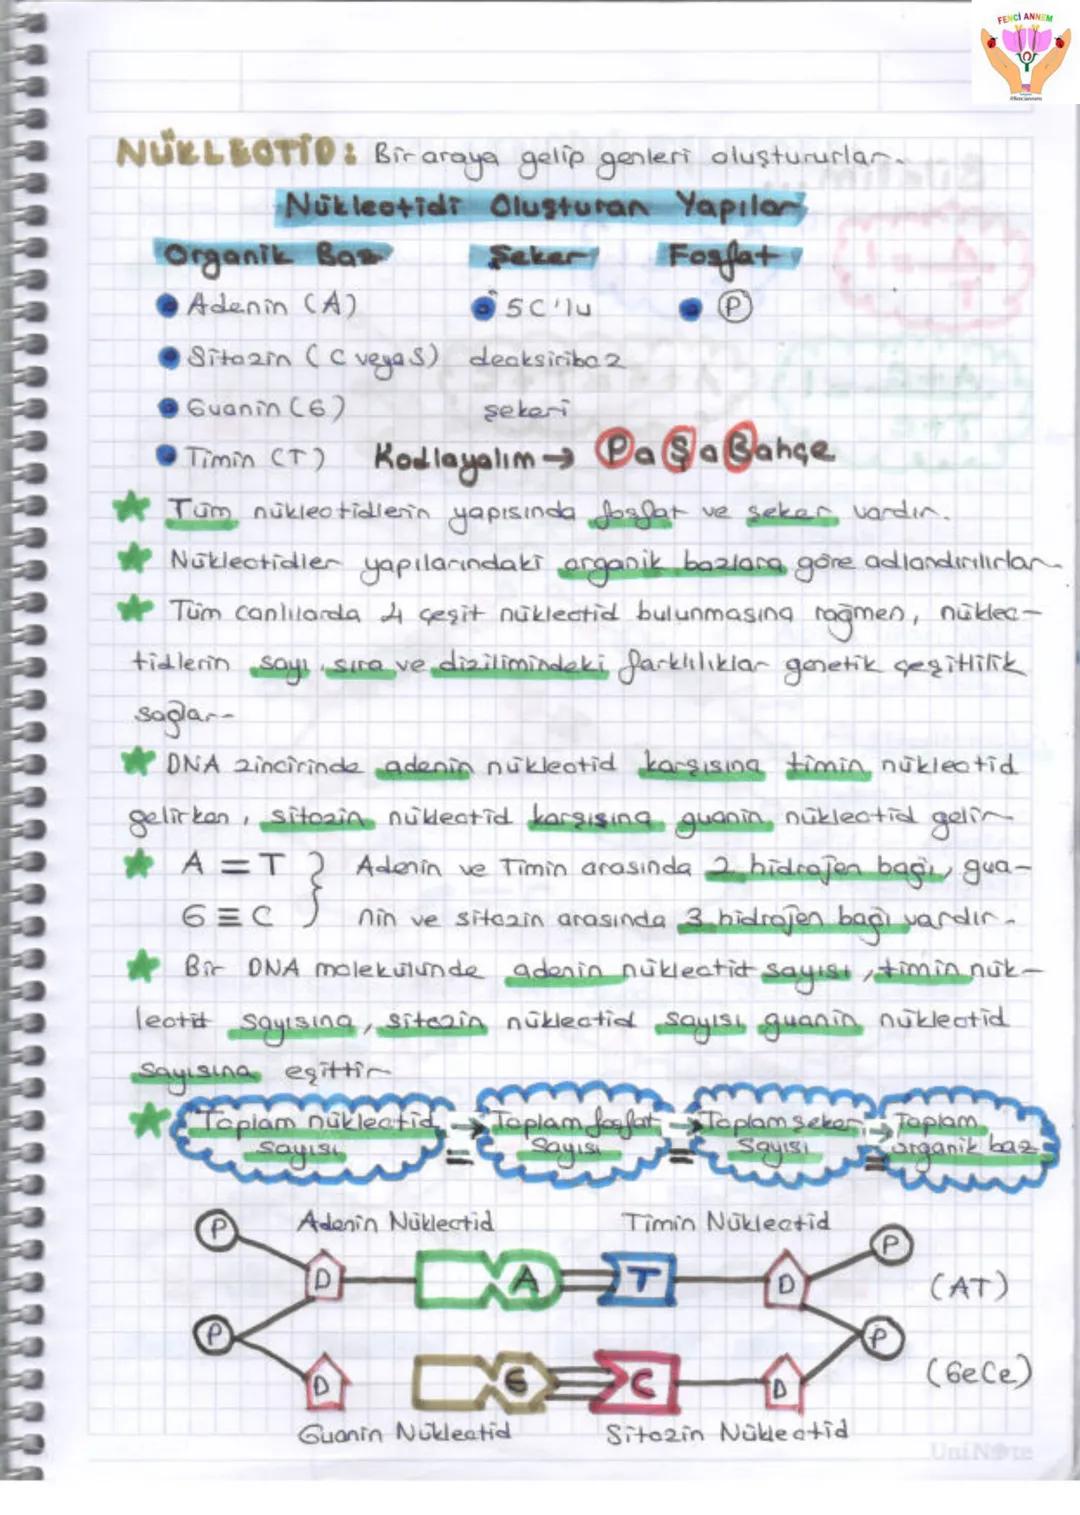 FENCİ ANNEM
NÜKLEOTİD: Bir araya gelip genleri oluştururlar.
Nükleotidi Oluşturan Yapılar
Organik Baz Şeker Fosfat
Adenin (A) 5C'lu P
Sitozin (C veya S) deoksiriboz
Guanin (G) şekeri
Timin (T) Kodlayalım → PaŞaBahçe
Tüm nükleotidlerin yapısında fosfat ve şeker vardır.
Nükleotidler yapılarındaki organik bazlara göre adlandırılırlar.
Tüm canlılarda 4 çeşit nükleotid bulunmasına rağmen, nükleo-
tidlerin sayı, sıra ve dizilimindeki farklılıklar genetik çeşitlilik
sağlar.
DNA zincirinde adenin nükleotid karşısına timin nükleotid
gelirken, sitozin nükleotid karşısına guanin nükleotid gelir.
A = T } Adenin ve Timin arasında 2 hidrojen bağı, gua-
G ≡ C nin ve sitozin arasında 3 hidrojen bağı vardır.
Bir DNA molekülünde adenin nükleotit sayısı, timin nük-
leotit sayısına, sitozin nükleotid sayısı guanin nükleotid
sayısına eşittir
Toplam nükleotid sayısı → = Toplam fosfat sayısı → = Toplam şeker sayısı → = Toplam organik baz
Adenin Nükleotid Timin Nükleotid
P P
D A T D (AT)
P P
D G C D (GeCe)
Guanin Nükleotid Sitozin Nükleotid
UniNote